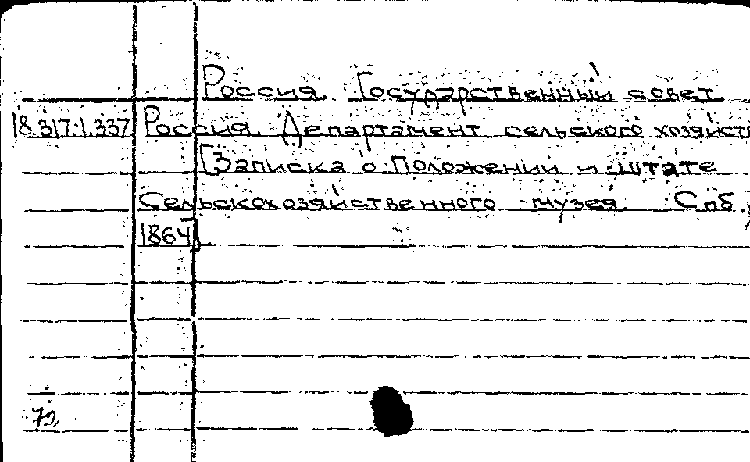 Россия. Государственный совет
18.317.1.337 Россия. Департамент сельского хозяйст
[Записка о Положении и штате
Сельскохозяйственного музея. Спб.,
1864].